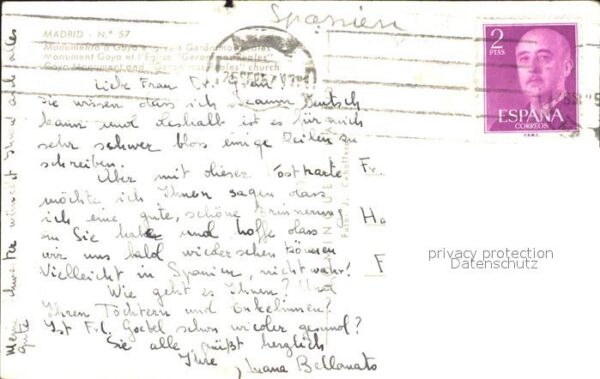 Spanien
MADRID - N.º 57
Monumento a Goya e Iglesia Gerónimos Reales
monument Goya et l'Église "Geronimos Reales"
Goya Monument and church
2
PTAS
ESPAÑA
CORREOS
Liebe Frau Dr.
sie wissen dass ich kaum Deutsch
kann und deshalb ist es für mich
sehr schwer blos einige Zeilen zu
schreiben.
Aber mit dieser Postkarte
möchte ich Ihnen sagen dass
ich eine gute, schöne Erinnerung
an Sie habe und hoffe dass
wir uns bald wiedersehen können
Vielleicht in Spanien, nicht wahr?
Wie geht es Ihnen? Und
Ihren Töchtern und Enkelinnen?
Ist Frl. Goebel schon wieder gesund?
Sie alle grüßt herzlich
Ihre, Juana Bellonato
Fr.
Ha
F
privacy protection
Datenschutz